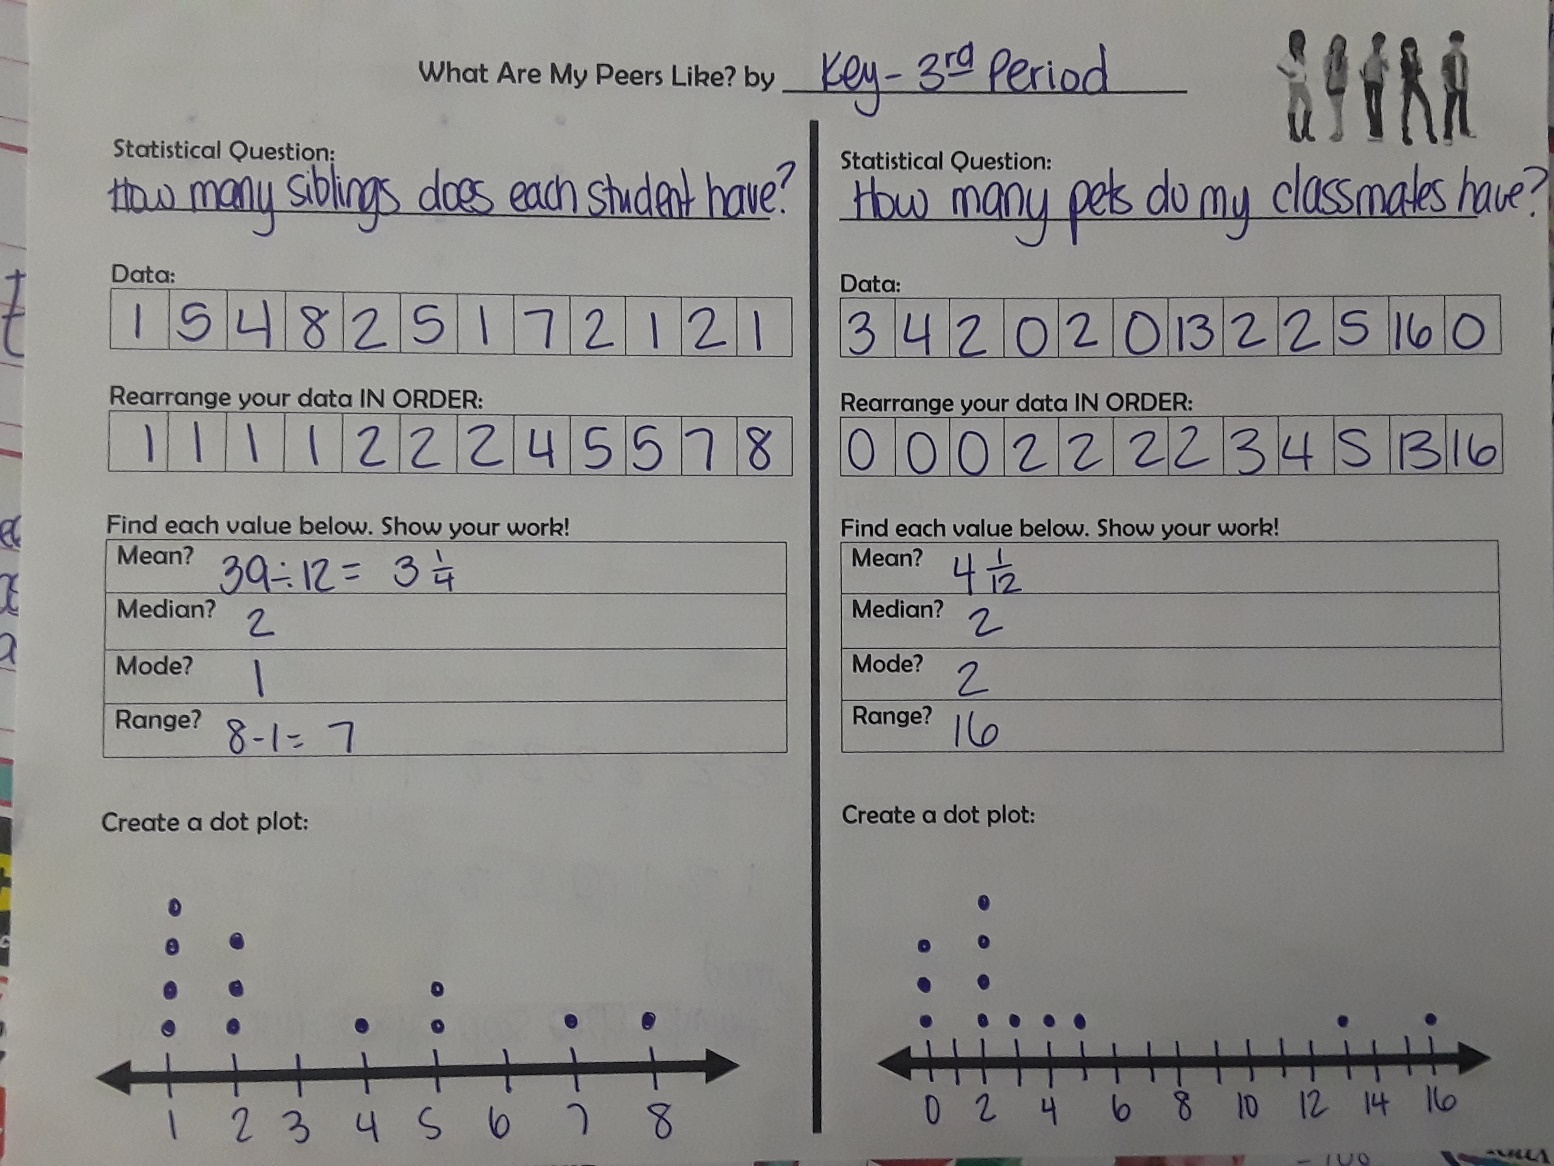 What Are My Peers Like? by Key - 3rd Period
Statistical Question:
How many siblings does each student have?
Data:
1 5 4 8 2 5 1 7 2 1 2 1
Rearrange your data IN ORDER:
1 1 1 1 2 2 2 4 5 5 7 8
Find each value below. Show your work!
Mean? 39÷12= 3 1/4
Median? 2
Mode? 1
Range? 8-1= 7
Create a dot plot:
1 2 3 4 5 6 7 8
Statistical Question:
How many pets do my classmates have?
Data:
3 4 2 0 2 0 13 2 2 5 16 0
Rearrange your data IN ORDER:
0 0 0 2 2 2 2 3 4 5 13 16
Find each value below. Show your work!
Mean? 4 1/12
Median? 2
Mode? 2
Range? 16
Create a dot plot:
0 2 4 6 8 10 12 14 16